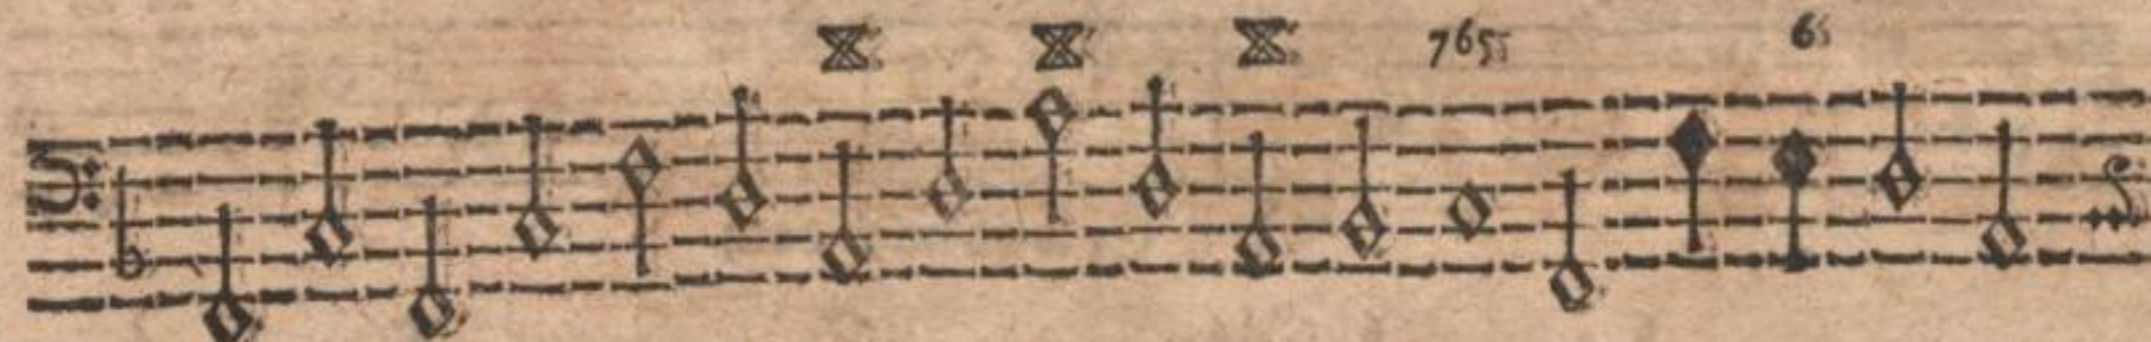 765 6